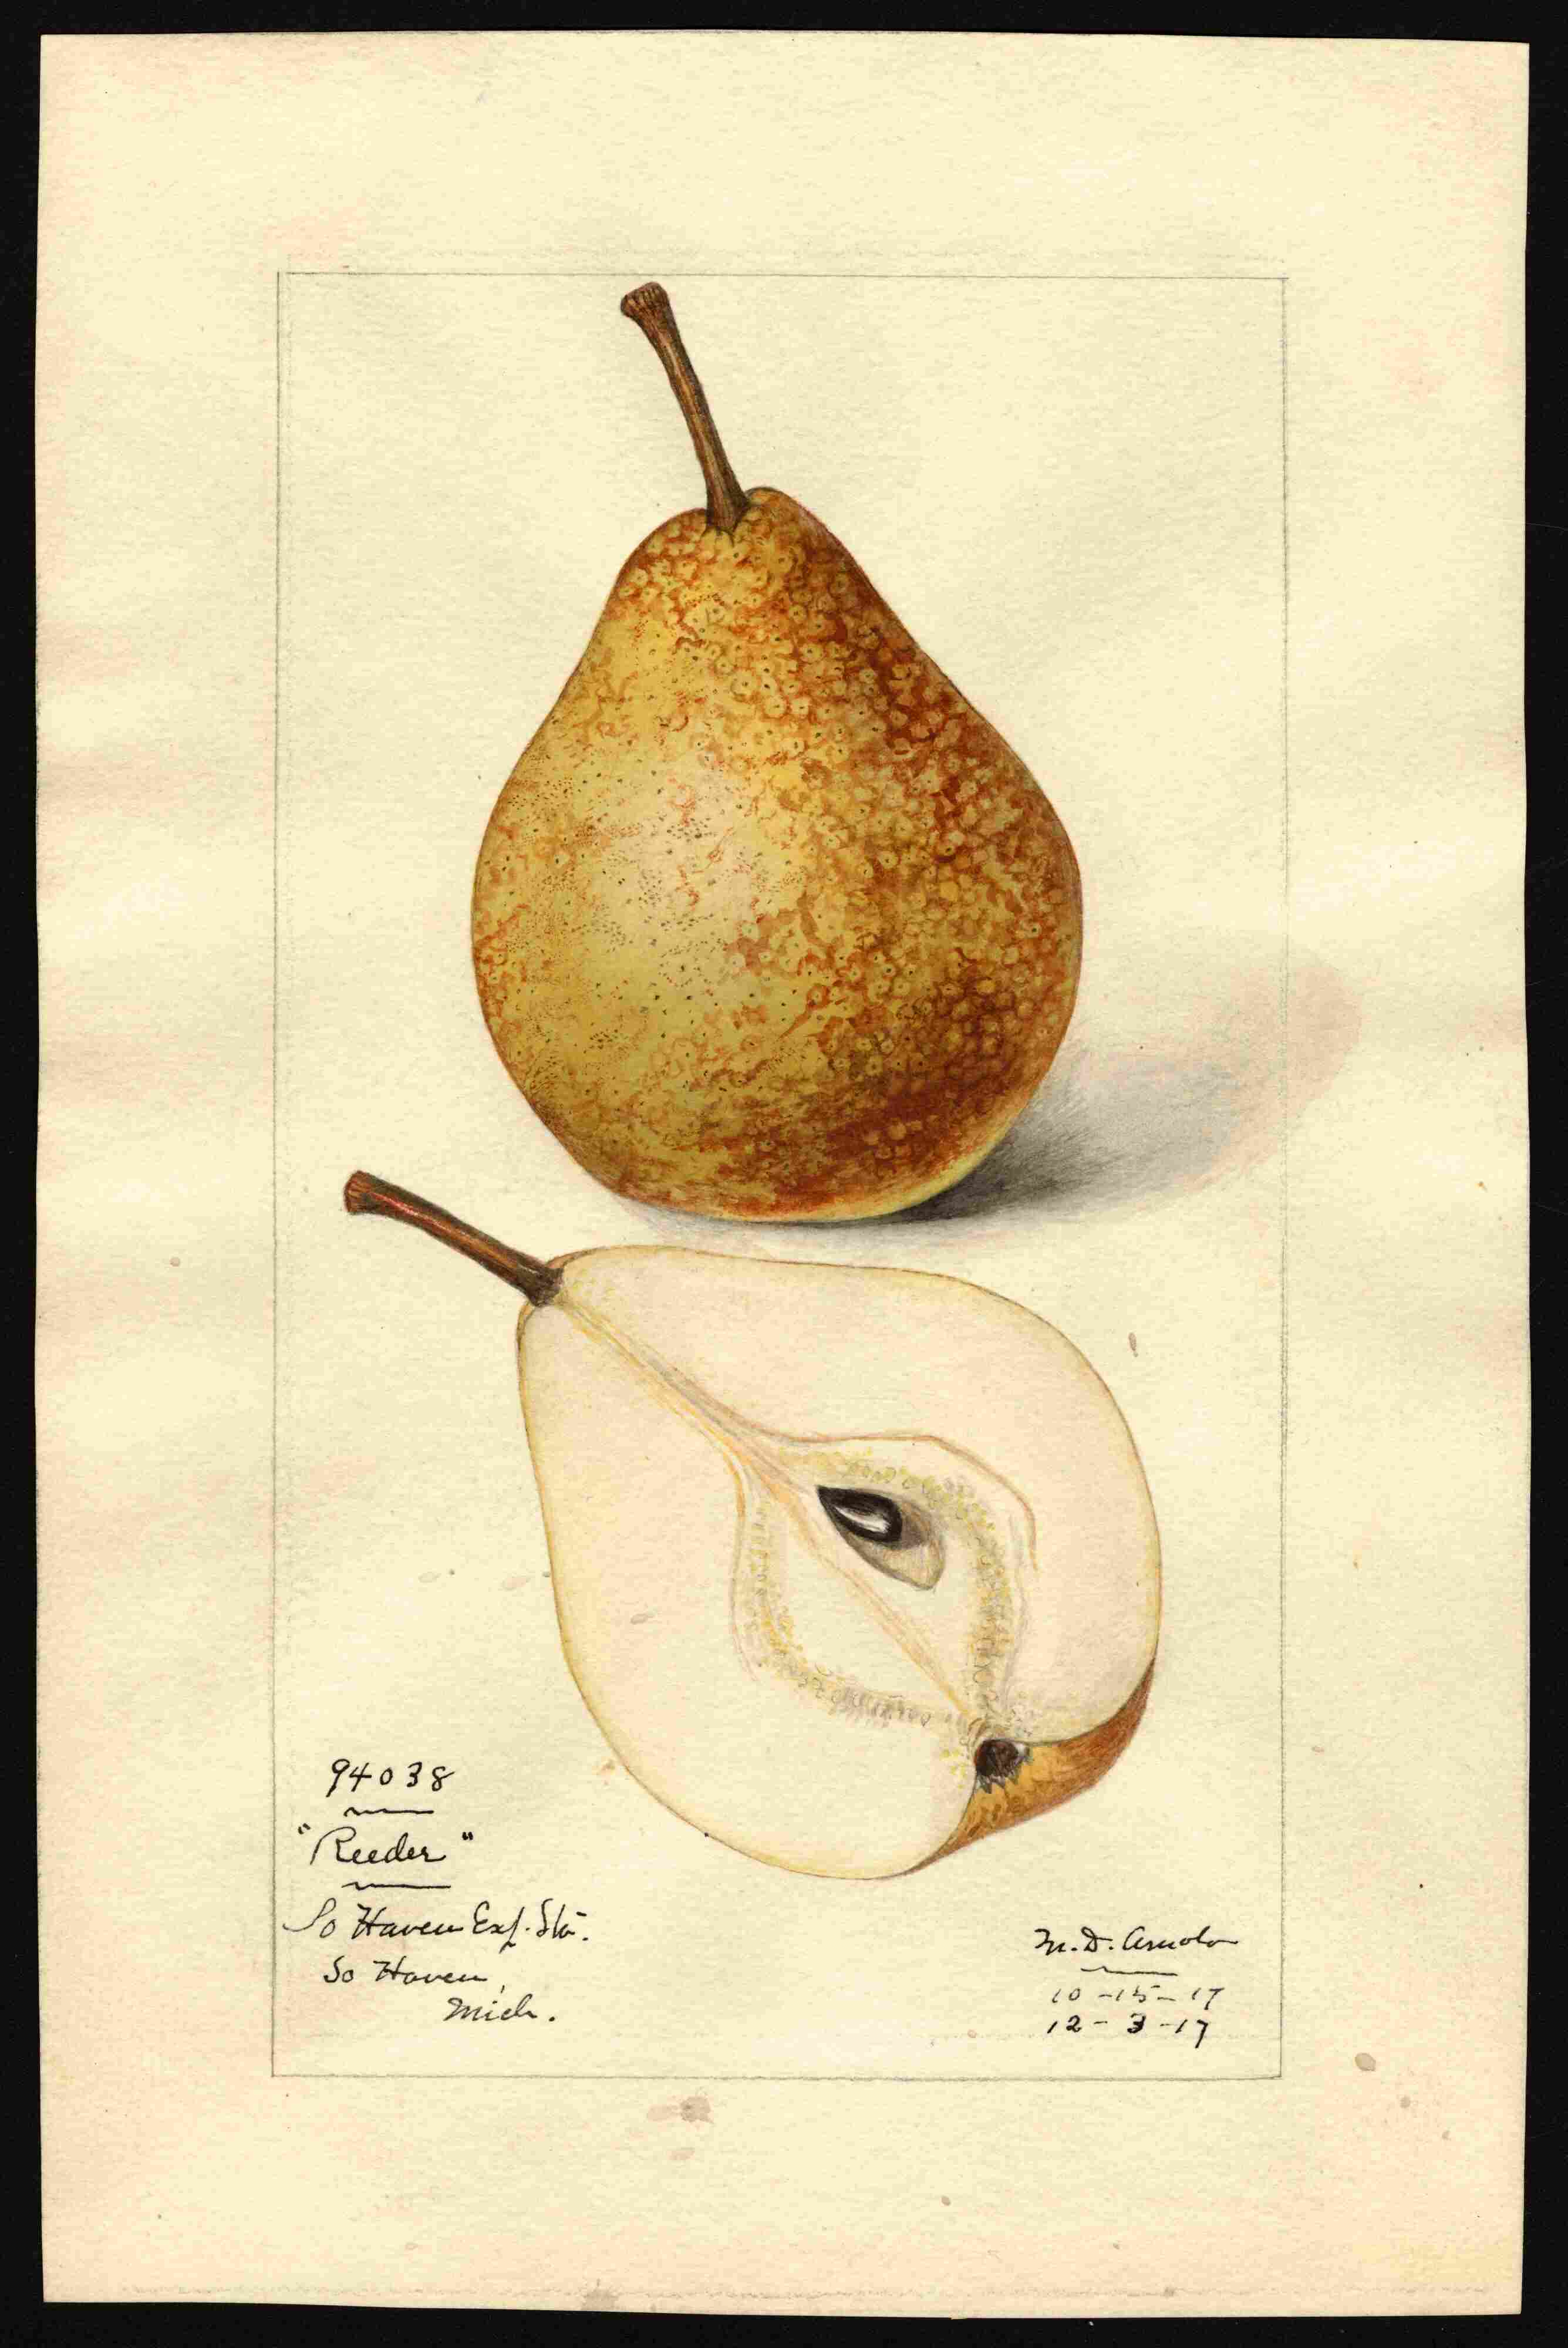 94038
"Reeder"
So Haven Exp. Sta.
So Haven,
Mich.
M. D. Arnold
10-15-17
12-3-17